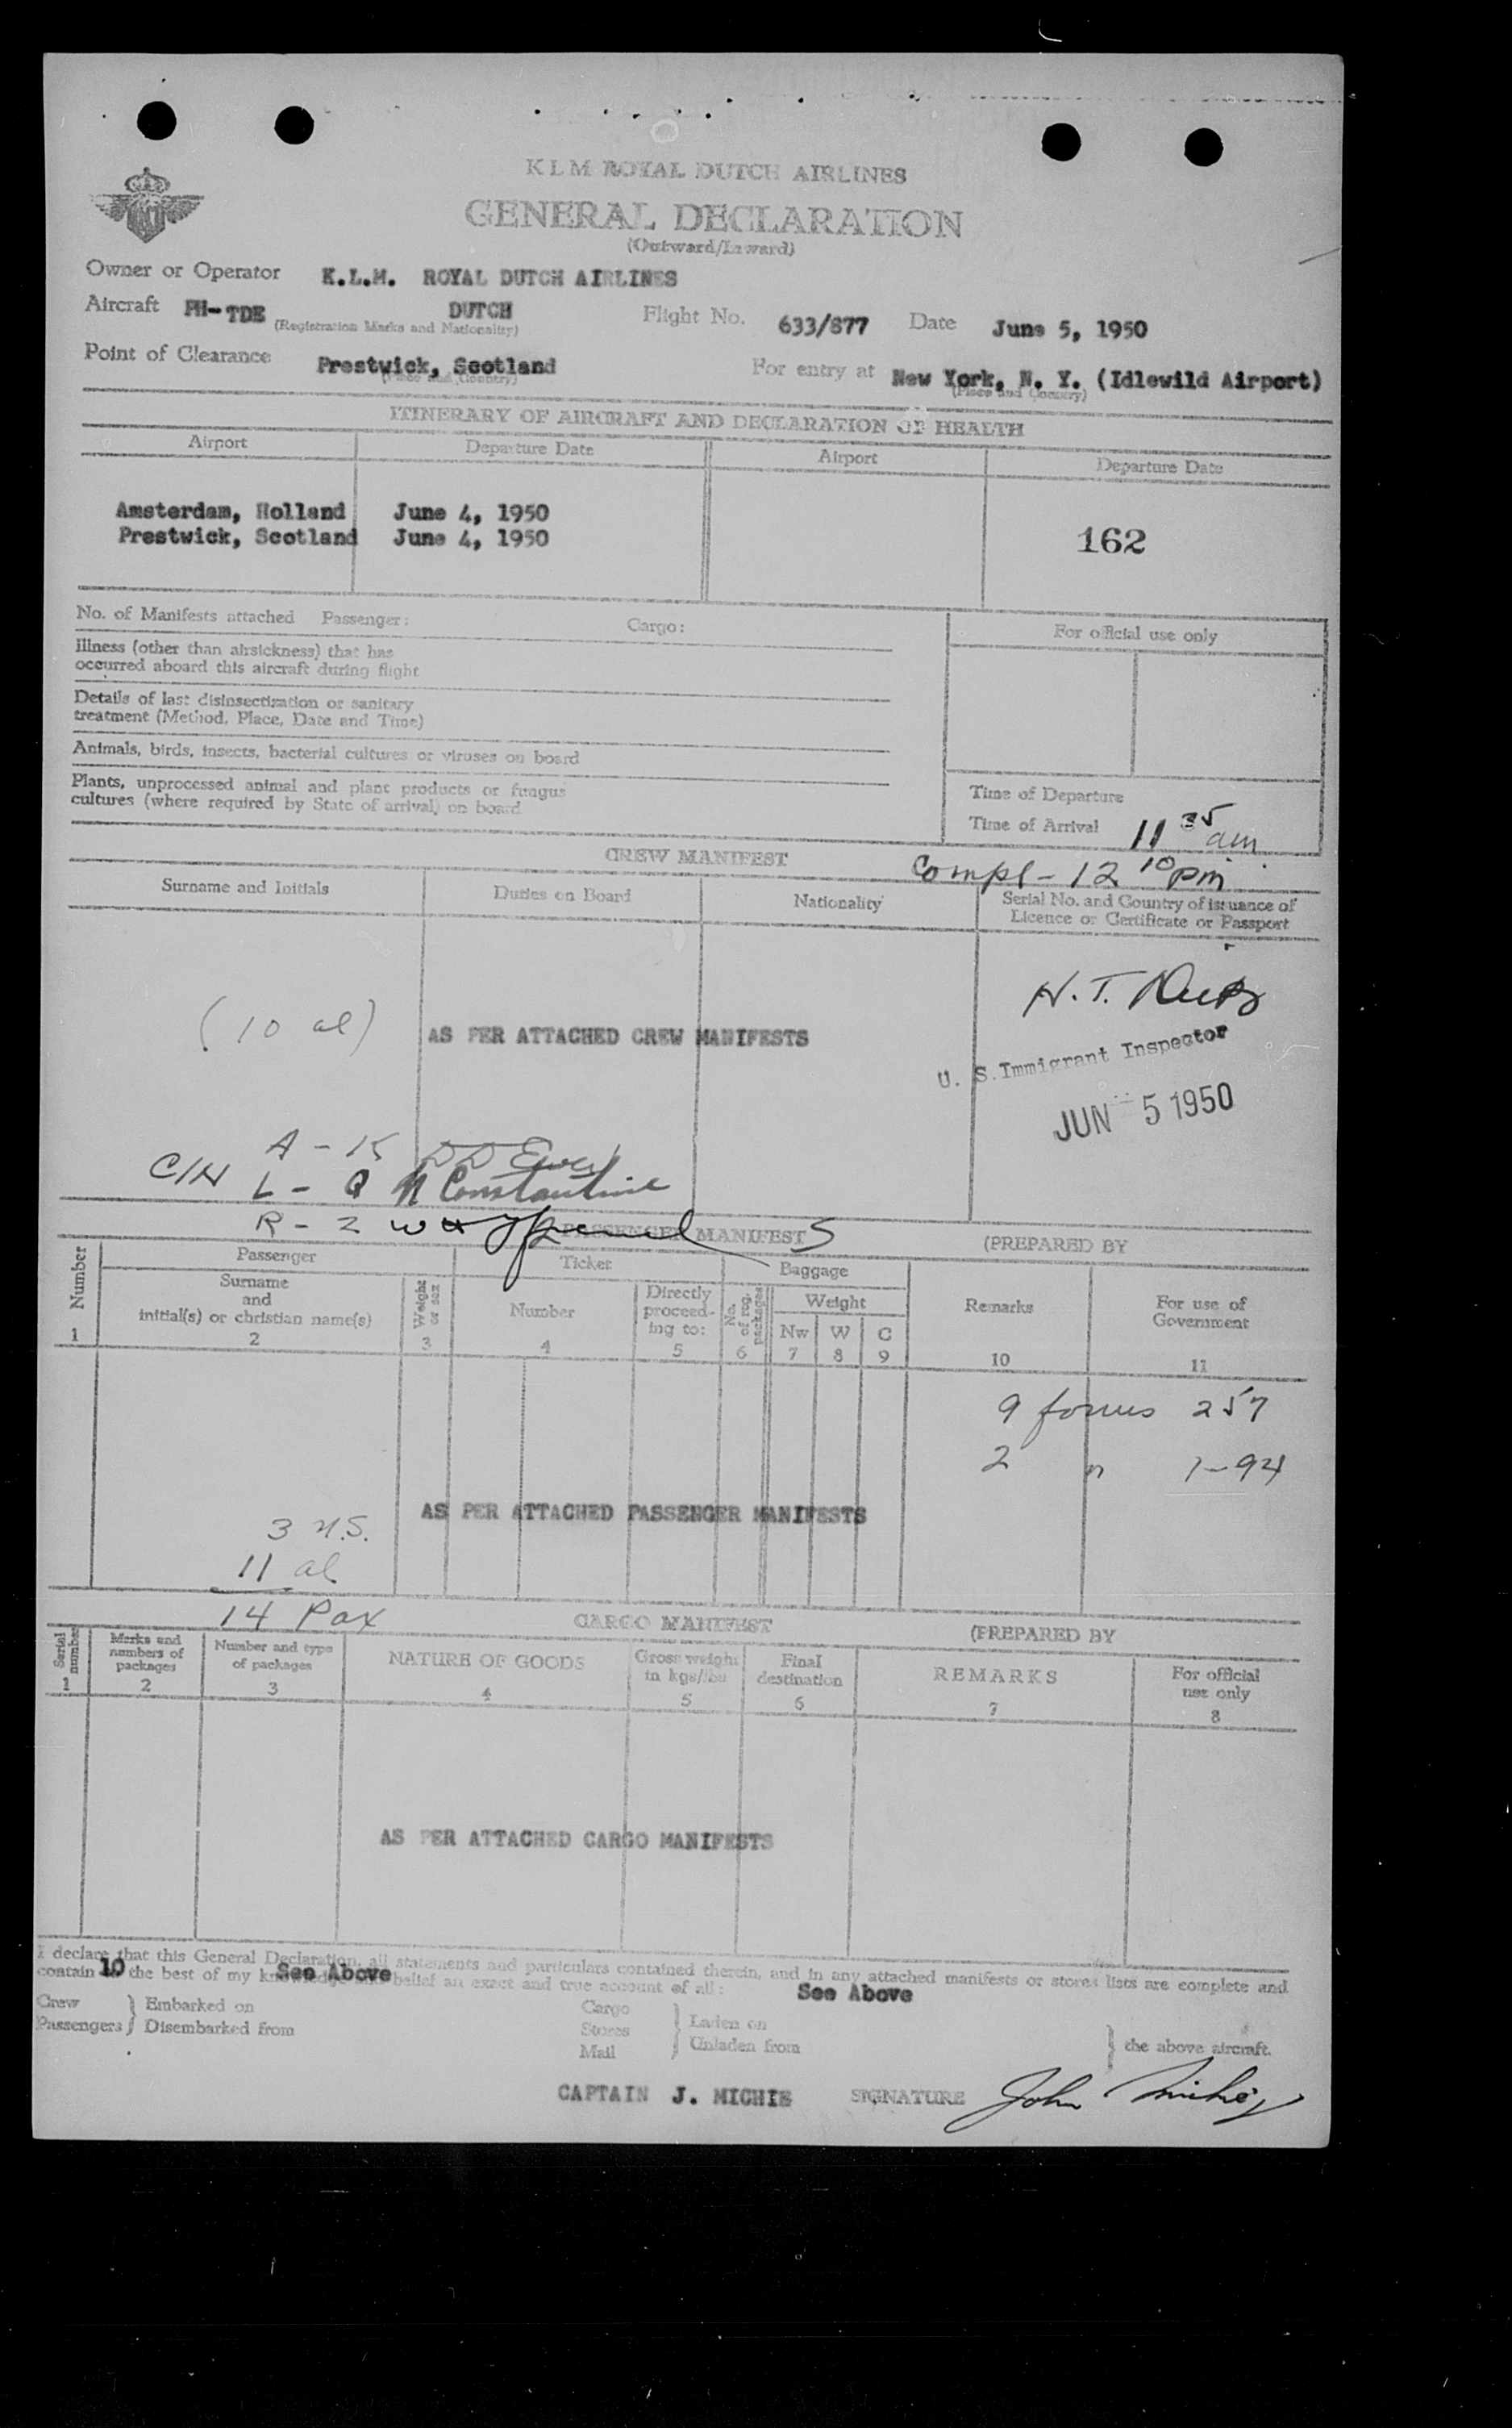 KLM ROYAL DUTCH AIRLINES
GENERAL DECLARATION
(Outward/Inward)
Owner or Operator K.L.M. ROYAL DUTCH AIRLINES
Aircraft PH-TDE DUTCH Flight No. 633/877 Date June 5, 1950
(Registration Marks and Nationality)
Point of Clearance Prestwick, Scotland For entry at New York, N. Y. (Idlewild Airport)
(Place and Country) (Place and Country)
ITINERARY OF AIRCRAFT AND DECLARATION OF HEALTH
Airport Departure Date Airport Departure Date
Amsterdam, Holland June 4, 1950
Prestwick, Scotland June 4, 1950
162
No. of Manifests attached Passenger: Cargo:
For official use only
Illness (other than airsickness) that has
occurred aboard this aircraft during flight
Details of last disinsectization or sanitary
treatment (Method, Place, Date and Time)
Animals, birds, insects, bacterial cultures or viruses on board
Plants, unprocessed animal and plant products or fungus
cultures (where required by State of arrival) on board
Time of Departure
Time of Arrival 11 35 am
CREW MANIFEST
Compl - 12 10 pm
Surname and Initials Duties on Board Nationality Serial No. and Country of issuance of
Licence or Certificate or Passport
H. T.
(10 al) AS PER ATTACHED CREW MANIFESTS
U. S. Immigrant Inspector
JUN 5 1950
A - K
C/N L - Q N Constantine
R - Z
PASSENGER MANIFEST (PREPARED BY
Number Passenger Ticket Baggage Remarks For use of
Government
Surname
and
initial(s) or christian name(s)
Weight
or sex
Number
Directly
proceed-
ing to:
No.
of reg.
packages
Weight
Nw W C
1 2 3 4 5 6 7 8 9 10 11
9 forms 257
2 " 1-94
AS PER ATTACHED PASSENGER MANIFESTS
3 U.S.
11 al
14 Pax
CARGO MANIFEST (PREPARED BY
Serial
number
Marks and
numbers of
packages
Number and type
of packages
NATURE OF GOODS
Gross weight
in kgs/lbs
Final
destination
REMARKS
For official
use only
1 2 3 4 5 6 7 8
AS PER ATTACHED CARGO MANIFESTS
I declare that this General Declaration, all statements and particulars contained therein, and in any attached manifests or stores lists are complete and
contain to the best of my knowledge and belief an exact and true account of all:
10 See Above See Above
Crew Embarked on Cargo Laden on
Passengers Disembarked from Stores Unladen from the above aircraft.
Mail
CAPTAIN J. MICHIE SIGNATURE John Michie